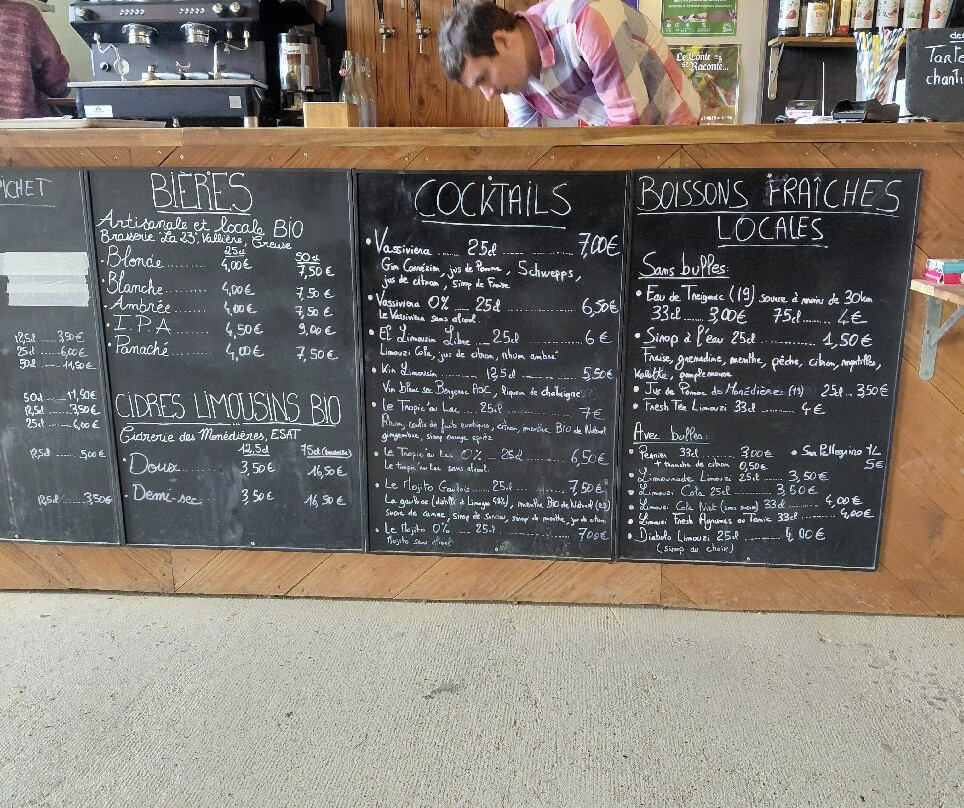 PICHET
12,5cl ..... 3,50€
25cl ..... 6,00€
50cl ..... 11,50€
50cl ..... 11,50€
12,5cl ..... 3,50€
25cl ..... 6,00€
12,5cl ..... 5,00€
12,5cl ..... 3,50€
BIÈRES
Artisanale et locale BIO
Brasserie La 23, Vallière, Creuse
25cl 50cl
• Blonde ......... 4,00€ 7,50€
• Blanche ......... 4,00€ 7,50€
• Ambrée ......... 4,00€ 7,50€
• I.P.A ......... 4,50€ 9,00€
• Panaché ......... 4,00€ 7,50€
CIDRES LIMOUSINS BIO
Cidrerie des Monédières, ESAT
12,5cl 75cl (bouteille)
• Doux ........ 3,50€ 16,50€
• Demi-sec ........ 3,50€ 16,50€
COCKTAILS
• Vassiviera ..... 25cl ........ 7,00€
jus de Pomme, Schwepps,
jus de citron, Sirop de Fraise
• Vassiviera 0% ... 25cl ........ 6,50€
Le Vassiviera sans alcool
• El Limousin Libre ..... 25cl ........ 6€
Limouzi Cola, jus de citron, rhum ambré
• Kir Limousin ........ 12,5cl ........ 5,50€
Vin blanc sec Bergerac AOC, liqueur de chataigne
• Le Tropic'au Lac ..... 25cl ........ 7€
Rhum, coulis de fruits exotiques, citron, menthe BIO de
gingembre, sirop
• Le Tropic'au Lac 0% ... 25cl ........ 6,50€
Le tropic'au lac sans alcool
• Le Mojito Gaulois ..... 25cl ........ 7,50€
menthe BIO de (23)
sucre de canne, sirop de sureau, sirop de menthe, jus de citron
• Le Mojito 0% ..... 25cl ........ 7,00€
Mojito sans alcool
BOISSONS FRAÎCHES
LOCALES
Sans bulles:
• Eau de Treignac (19) source à moins de 30km
33cl ..... 3,00€ 75cl ..... 4€
• Sirop à l'eau 25cl ........ 1,50€
Fraise, grenadine, menthe, pêche, citron, myrtilles,
Violette, pamplemousse
• Jus de Pomme des Monédières (19) 25cl . 3,50€
• Fresh Tea Limouzi 33cl ........ 4€
Avec bulles:
• Perrier 33cl ..... 3,00€ • San Pellegrino 1L
+ tranche de citron 0,50€ 5€
• Limounade Limouzi 25cl ..... 3,50€
• Limouzi Cola 25cl ........ 3,50€
• Limouzi Cola (sans sucres) 33cl ..... 4,00€
• Limouzi Fresh Agrumes ou Tonic 33cl ..... 4,00€
• Diabolo Limouzi 25cl ........ 4,00€
(sirop au choix)
Le Conte
Raconte...
des
chanti